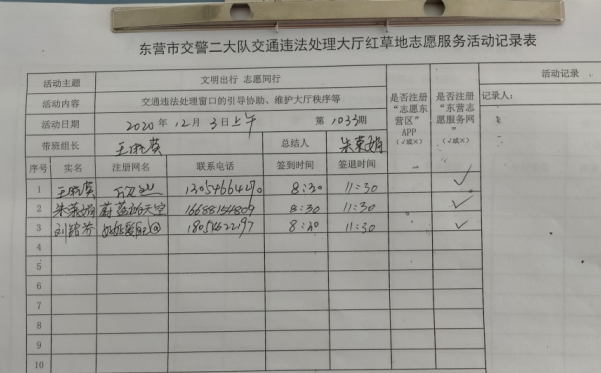 东营市交警二大队交通违法处理大厅红草地志愿服务活动记录表
活动主题 文明出行 志愿同行
活动内容 交通违法处理窗口的引导协助、维护大厅秩序等
活动日期 2020年12月3日上午 第1033期
带班组长 总结人 朱荣娟
是否注册“志愿东营区”APP（√或×）
是否注册“东营志愿服务网”（√或×）
活动记录
记录人：
序号 实名 注册网名 联系电话 签到时间 签退时间
1 8:30 11:30 √
2 朱荣娟 蔚蓝的天空 8:30 11:30 √
3 18054622197 8:30 11:30 √
4
5
6
7
8
9
10